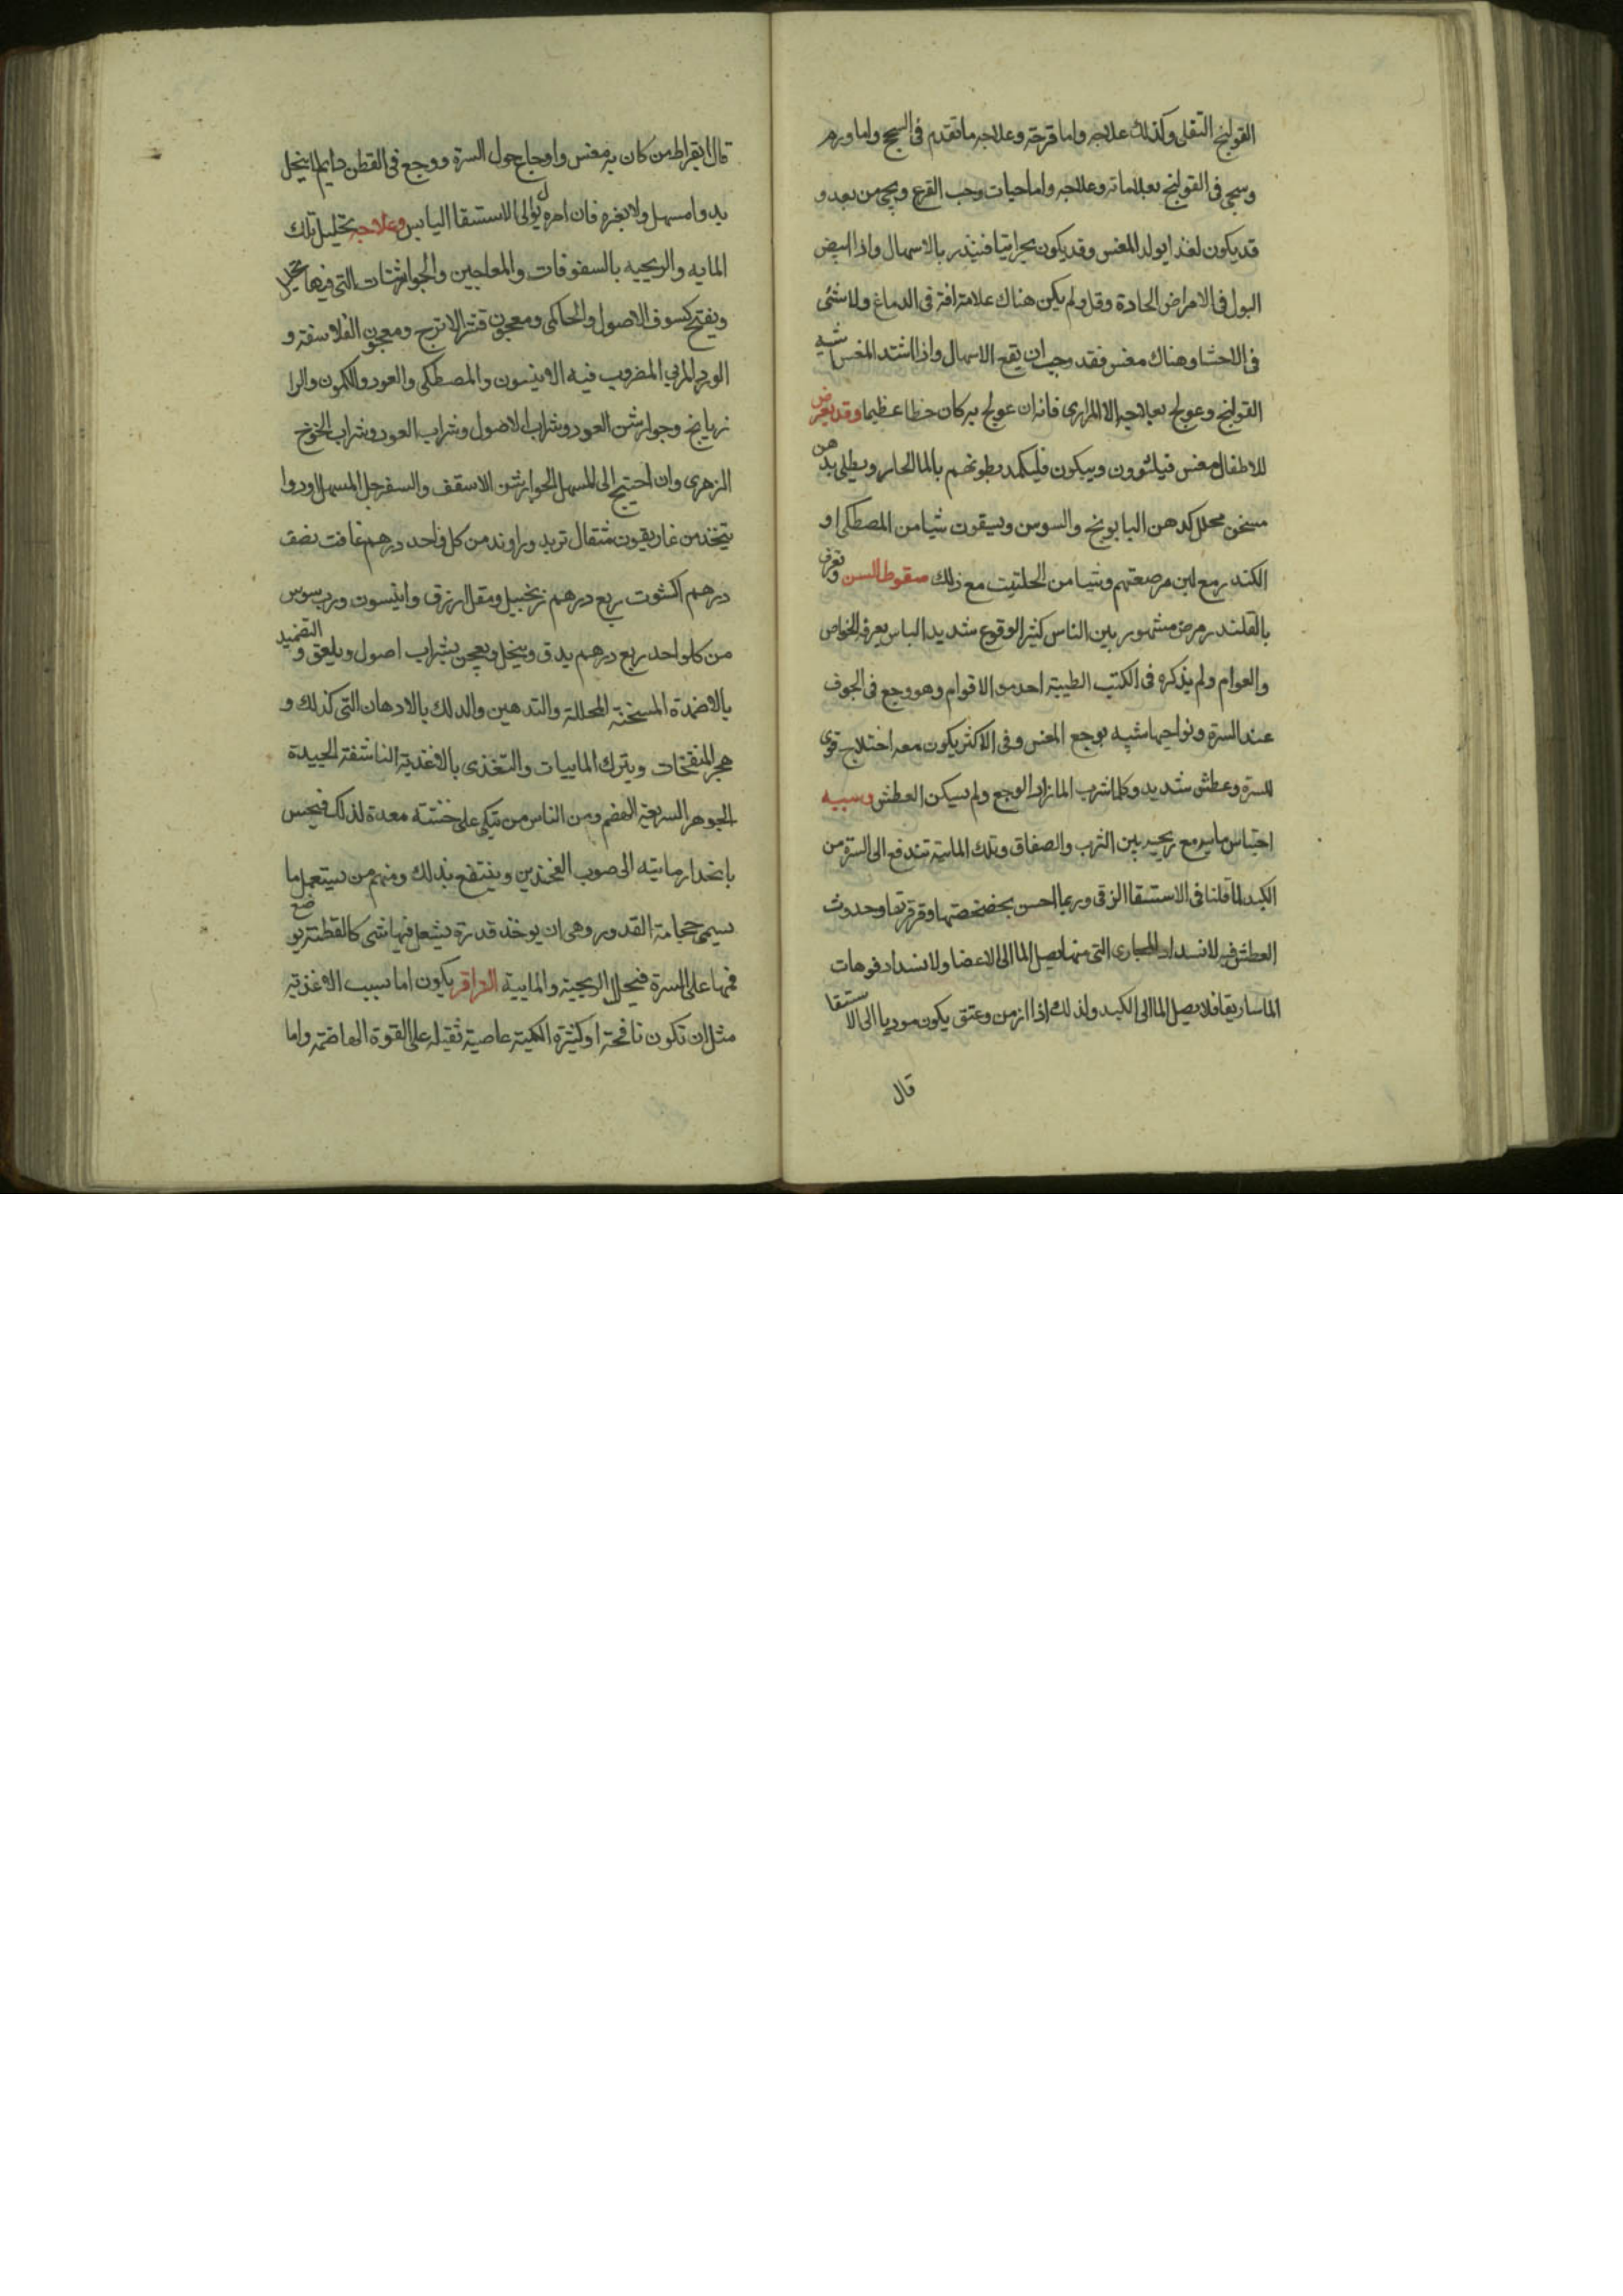 القولنج الثفلى وكذلك علاجه واما قرحته وعلاجه ما تقدم فى السحج واما ورم
وسيجى فى القولنج بعلاماته وعلاجه واما حيات وحب القرع ويجى من بعد و
قد يكون لغذا يولد المغس وقد يكون بحرانيا فينذر بالاسهال واذا ابيض
البول فى الامراض الحادة وقل ولم يكن هناك علامة افة فى الدماغ ولا شئى
فى الاحشا وهناك مغس فقد وجب ان يقع الاسهال واذا اشتد المغس شبه
القولنج وعولج بعلاجه الا المرارى فانه ان عولج به كان خطا عظيما وقد يعرض
للاطفال مغس فيلتوون ويبكون فليكمد بطونهم بالما الحار ويطلى بدهن
مسخن محلل كدهن البابونج والسوسن ويسقون شيا من المصطكى او
الكندر مع لبن مرضعتهم وشيا من الحلتيت مع ذلك سقوط السن وتعرف
بالقلندر مرض مشهور بين الناس كثير الوقوع شديد الباس يعرفه الخواص
والعوام ولم يذكره فى الكتب الطبية احد من الاقوام وهو وجع فى الجوف
عند السرة ونواحيها شبه بوجع المغس وفى الاكثر يكون معه اختلاج قوى
للسرة وعطش شديد وكلما شرب الما زاد الوجع ولم يسكن العطش وسببه
احتباس مايه مع ريحيه بين الثرب والصفاق وتلك الماية تندفع الى السرة من
الكبد لما قلنا فى الاستسقا الزقى وربما احس بخضخضتها وقرقرتها وحدوث
العطش فيه لانسداد المجارى التى منها يصل الما الى الاعضا ولانسداد فوهات
الماساريقا فلا يصل الما الى الكبد ولذلك اذا ازمن وعتق يكون موديا الى الاستسقا
قال
قال ابقراط من كان به مغس واوجاع حول السرة ووجع فى القطن دايم لا ينحل
بدوا مسهل ولا بغيره فان امره يؤل الى الاستسقا اليابس وعلاجه تحليل تلك
المايه والريحيه بالسفوفات والمعاجين والجوارشات التى فيها تحليل
وتفتيح كسوف الاصول والحاكى ومعجون قشر الاترج ومعجون الفلاسفة و
الورد المربى المضروب فيه الانيسون والمصطكى والعود والكمون والرا
زيانج وجوارشن العود وشراب الاصول وشراب العود وشراب الخوخ
الزهرى وان احتيج الى المسهل الجوارشن الاسقف والسفرجل المسهل او دوا
يتخذ من غاريقون مثقال تربد وراوند من كل واحد درهم غافت نصف
درهم اكشوت ربع درهم زنجبيل ومقل ازرق وانيسون ورب سوس
من كل واحد ربع درهم يدق وينخل ويعجن بشراب اصول ويلعق والتضميد
بالاضمدة المسخنة المحللة والتدهين والدلك بالادهان التى كذلك و
هجر المنفخات ويترك الماييات والتغذى بالاغذية الناشفة الجيدة
الجوهر السريعة الهضم ومن الناس من يتكى على خشبة معدة لذلك فيحس
بانحدار مايته الى صوب الفخذين وينتفع بذلك ومنهم من يستعمل ما
يسمى حجامة القدور وهى ان يوخذ قدرة يشعل فيها شى كالقطنة يوضع
فمها على السرة فيحلل الريحية والمايية القراقر يكون اما بسبب الاغذية
مثل ان تكون نافخة او كثيرة الكمية عاصية ثقيله على القوة الهاضمة واما